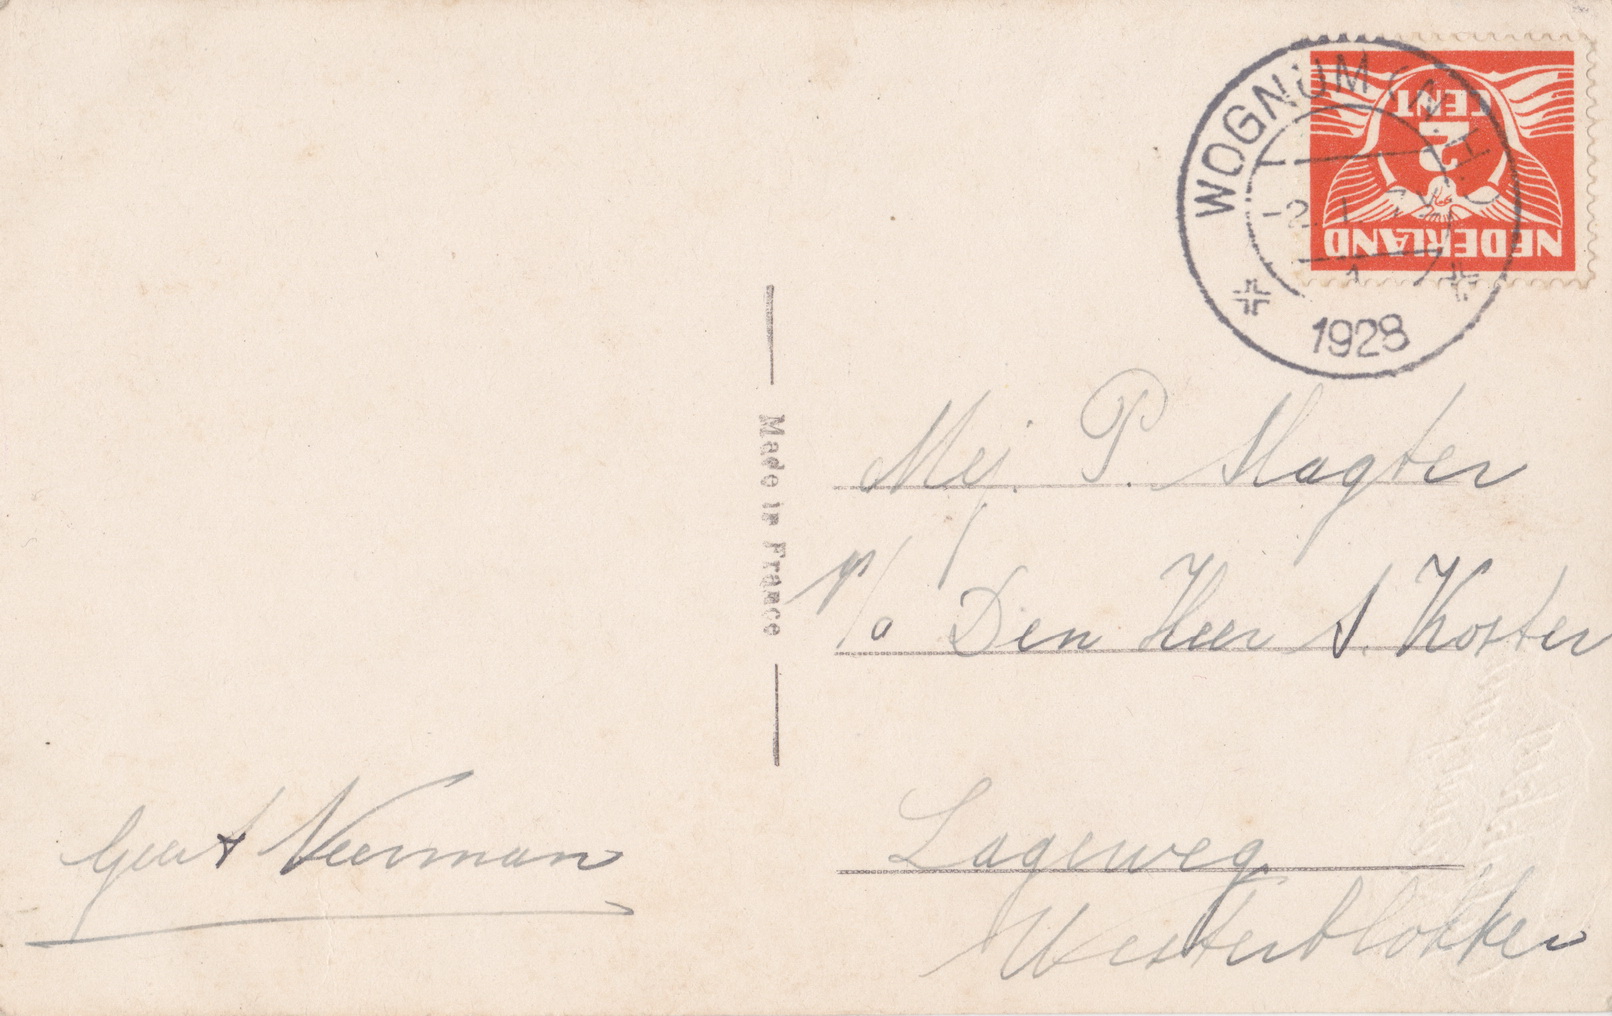 WOGNUM (N.H.)
2
CENT
NEDERLAND
1928
Made in France
Mej. P. Slagter
p/a Den Heer S. Koster
Lageweg
Westerblokker
Geert Veerman